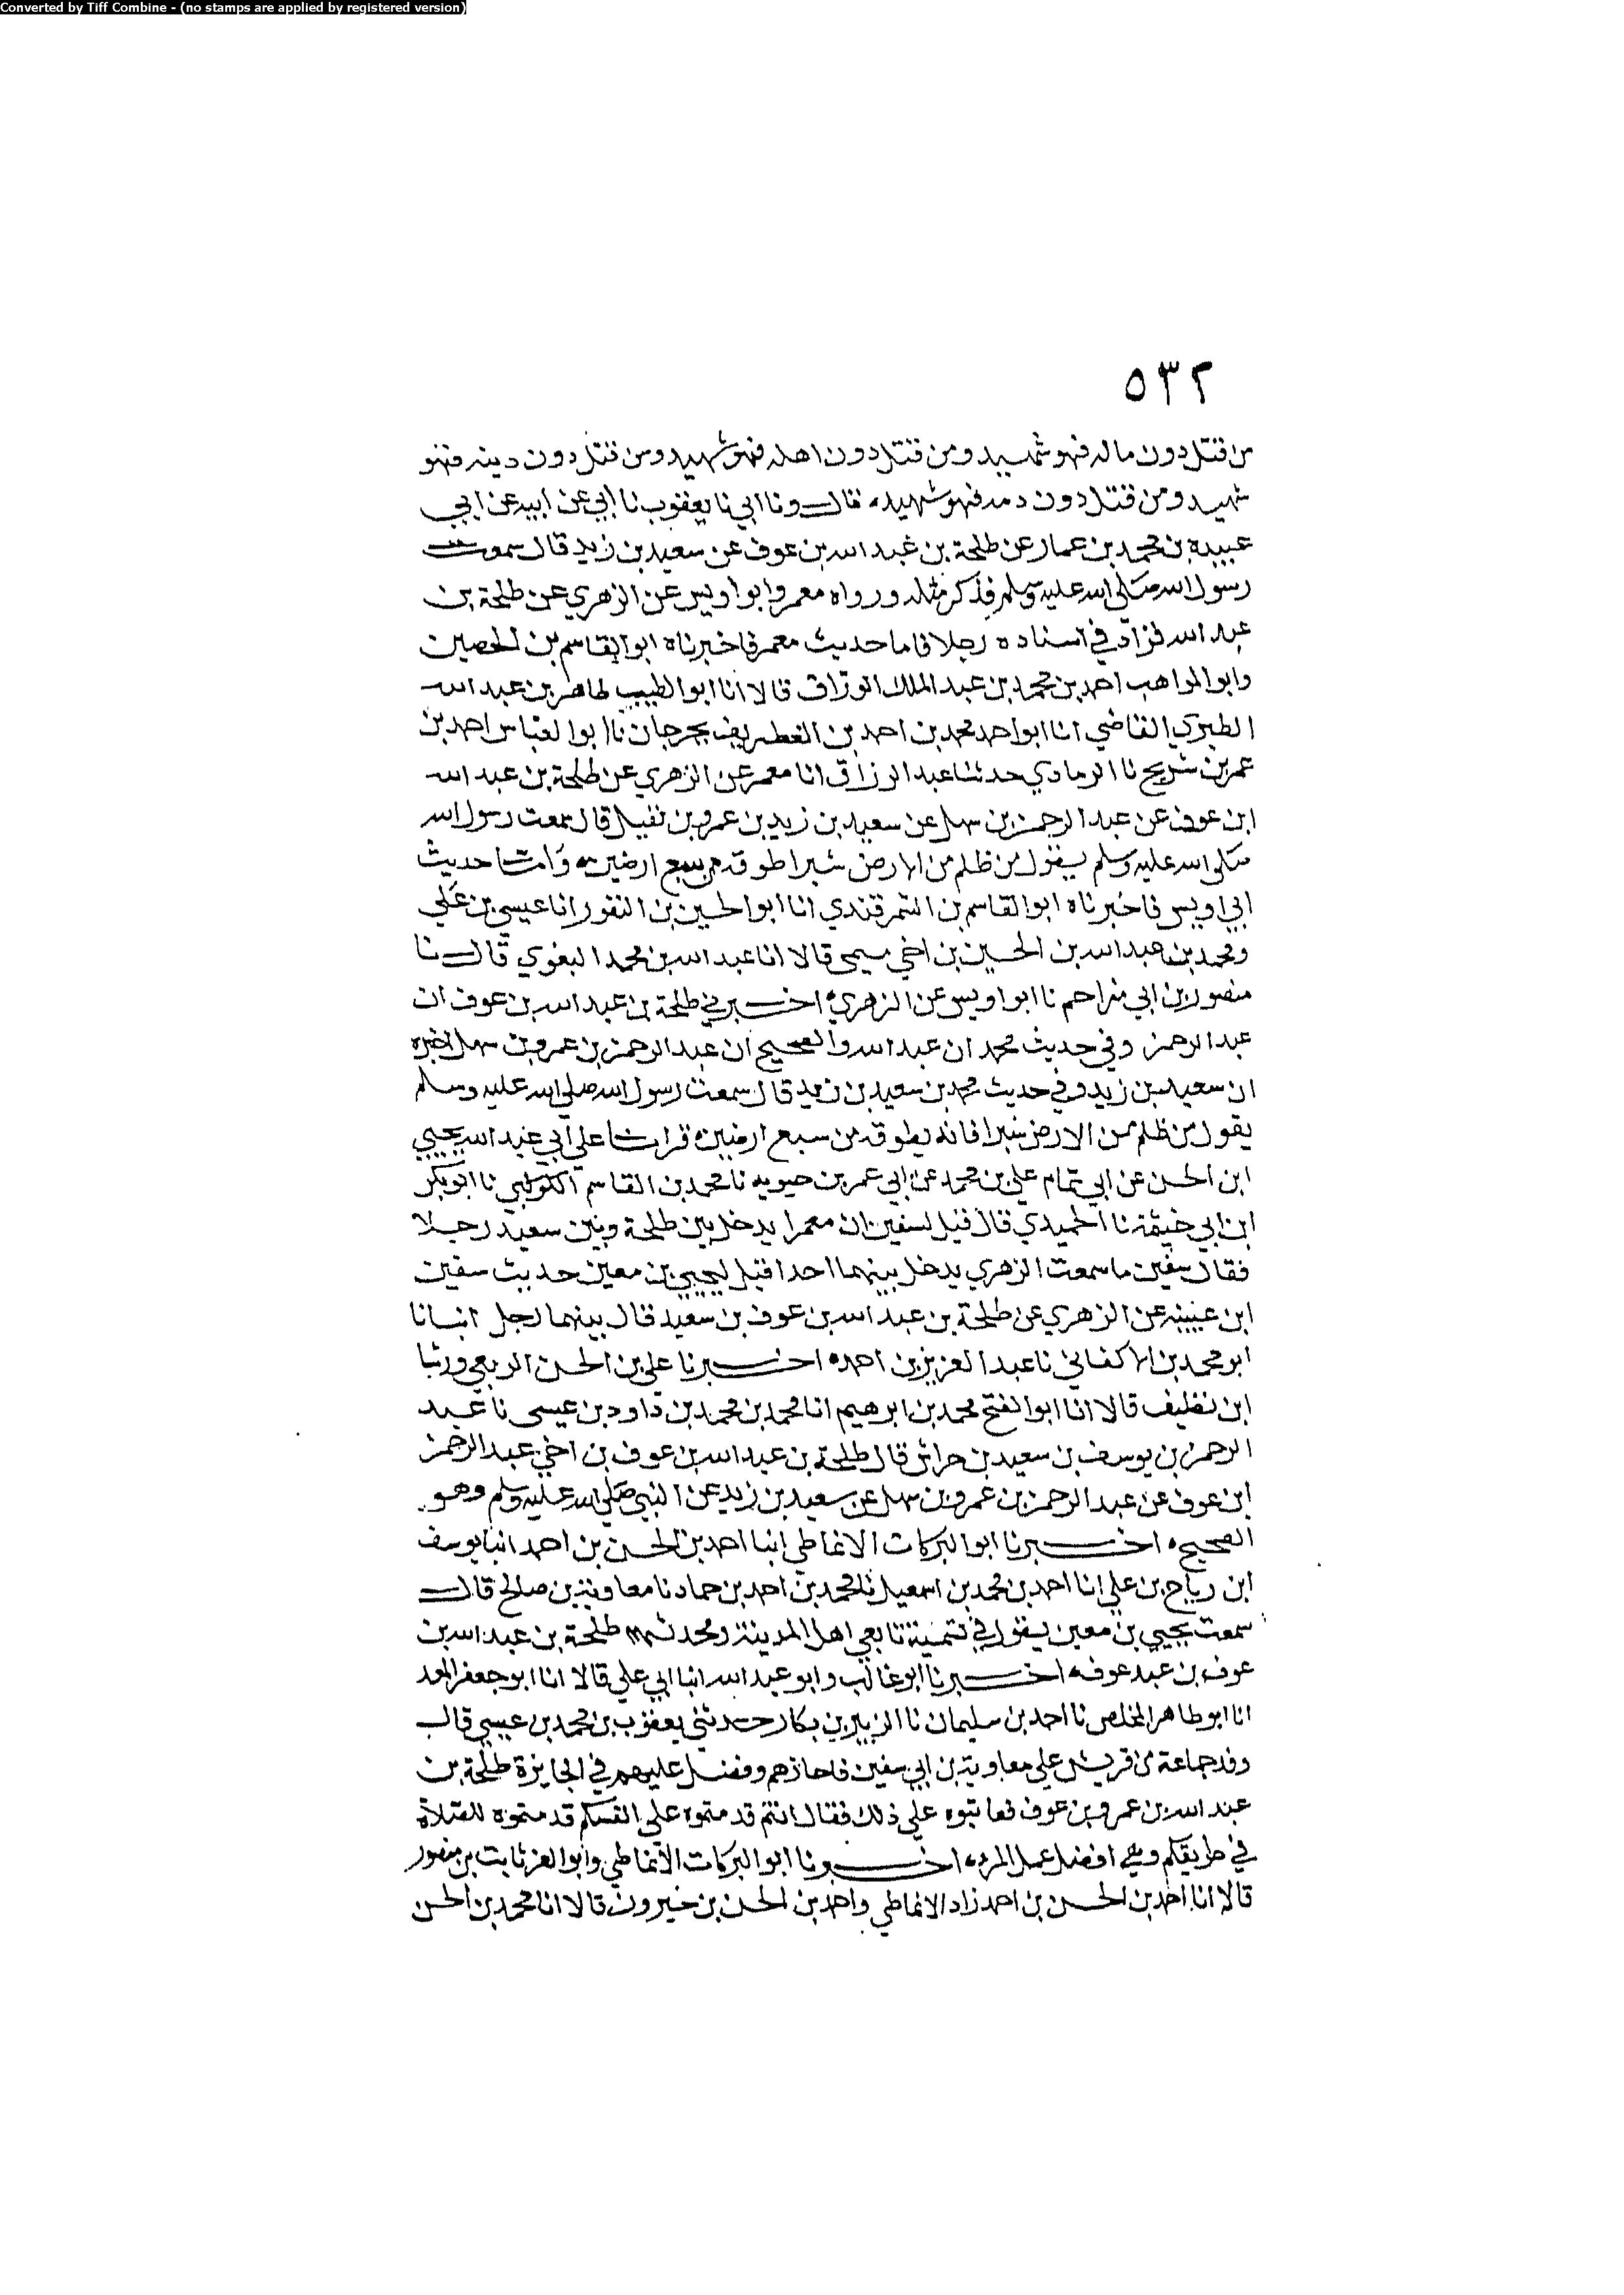 Converted by Tiff Combine - (no stamps are applied by registered version)
٥٣٢
من قتل دون ماله فهو شهيد ومن قتل دون اهله فهو شهيد ومن قتل دون دينه فهو
شهيد ومن قتل دون دمه فهو شهيد، قال ونا ابي نا يعقوب نا ابي عن ابيه عن ابي
عبيدة بن محمد بن عمار عن طلحة بن عبد الله بن عوف عن سعيد بن زيد قال سمعت
رسول الله صلى الله عليه وسلم فذكر مثله ورواه معمر وابو اويس عن الزهري عن طلحة بن
عبد الله فزاد في اسناده رجلا فاما حديث معمر فاخبرناه ابو القاسم بن الحصين
وابو المواهب احمد بن محمد بن عبد الملك الوراق قالا انا ابو الطيب طاهر بن عبد الله
الطبري القاضي انا ابو احمد محمد بن احمد بن الغطريف بجرجان نا ابو العباس احمد بن
عمر بن شريح نا الرمادي حدثنا عبد الرزاق انا معمر عن الزهري عن طلحة بن عبد الله
ابن عوف عن عبد الرحمن بن سهل عن سعيد بن زيد بن عمرو بن نفيل قال سمعت رسول الله
صلى الله عليه وسلم يقول من ظلم من الارض شبرا طوقه من سبع ارضين وامثا حديث
ابي اويس فاخبرناه ابو القاسم بن السمرقندي انا ابو الحسين بن النقور انا عيسى بن علي
ومحمد بن عبد الله بن الحسين بن اخي ميمي قالا انا عبد الله بن محمد البغوي قال نا
منصور بن ابي مزاحم نا ابو اويس عن الزهري اخبرني طلحة بن عبد الله بن عوف ان
عبد الرحمن وفي حديث محمد ان عبد الله والصحيح ان عبد الرحمن بن عمرو بن سهل اخبره
ان سعيد بن زيد وفي حديث محمد بن سعيد بن زيد قال سمعت رسول الله صلى الله عليه وسلم
يقول من ظلم من الارض شبرا فانه يطوقه من سبع ارضين قرات على ابي عبد الله يحيي
ابن الحسن عن ابي تمام علي بن محمد عن ابي عمر بن حيويه نا محمد بن القاسم الكوكبي نا ابو بكر
ابن ابي خيثمة نا الحميدي قال قيل لسفين ان معمرا يدخل بين طلحة وبين سعيد رجلا
فقال سفين ما سمعت الزهري يدخل بينهما احدا قيل ليحيي بن معين حديث سفين
ابن عيينه عن الزهري عن طلحة بن عبد الله بن عوف بن سعيد قال بينهما رجل انبانا
ابو محمد بن الاكفاني نا عبد العزيز بن احمد اخبرنا علي بن الحسن الربعي ورشا
ابن نظيف قالا انا ابو الفتح محمد بن ابرهيم انا محمد بن محمد بن داود بن عيسى نا عبد
الرحمن بن يوسف بن سعيد بن خراش قال طلحة بن عبد الله بن عوف بن اخي عبد الرحمن
ابن عوف عن عبد الرحمن بن عمرو بن سهل عن سعيد بن زيد عن النبي صلى الله عليه وسلم وهو
الصحيح اخبرنا ابو البركات الانماطي انبا احمد بن الحسن بن احمد انبا يوسف
ابن رياح بن علي انا احمد بن محمد بن اسمعيل نا محمد بن احمد بن حماد نا معاوية بن صالح قال
سمعت يحيي بن معين يقول في تسمية تابعي اهل المدينة ومحدثيهم طلحة بن عبد الله بن
عوف بن عبد عوف اخبرنا ابو غالب وابو عبد الله انبا ابي علي قالا انا ابو جعفر المعد
انا ابو طاهر المخلص نا احمد بن سليمان نا الزبير بن بكار حدثني يعقوب بن محمد بن عيسي قال
وفد جماعة من قريش على معاوية بن ابي سفين فاجازهم وفضل عليهم في الجايزة طلحة بن
عبد الله بن عمرو بن عوف فعاتبوه علي ذلك فقال انتم قدمتموه على انفسكم قدمتموه للصلاة
في طريقكم وهي افضل عمل المرء اخبرنا ابو البركات الانماطي وابو العز ثابت بن منصور
قالا انا احمد بن الحسن بن احمد زاد الانماطي واحمد بن الحسن بن خيرون قالا انا محمد بن الحسن